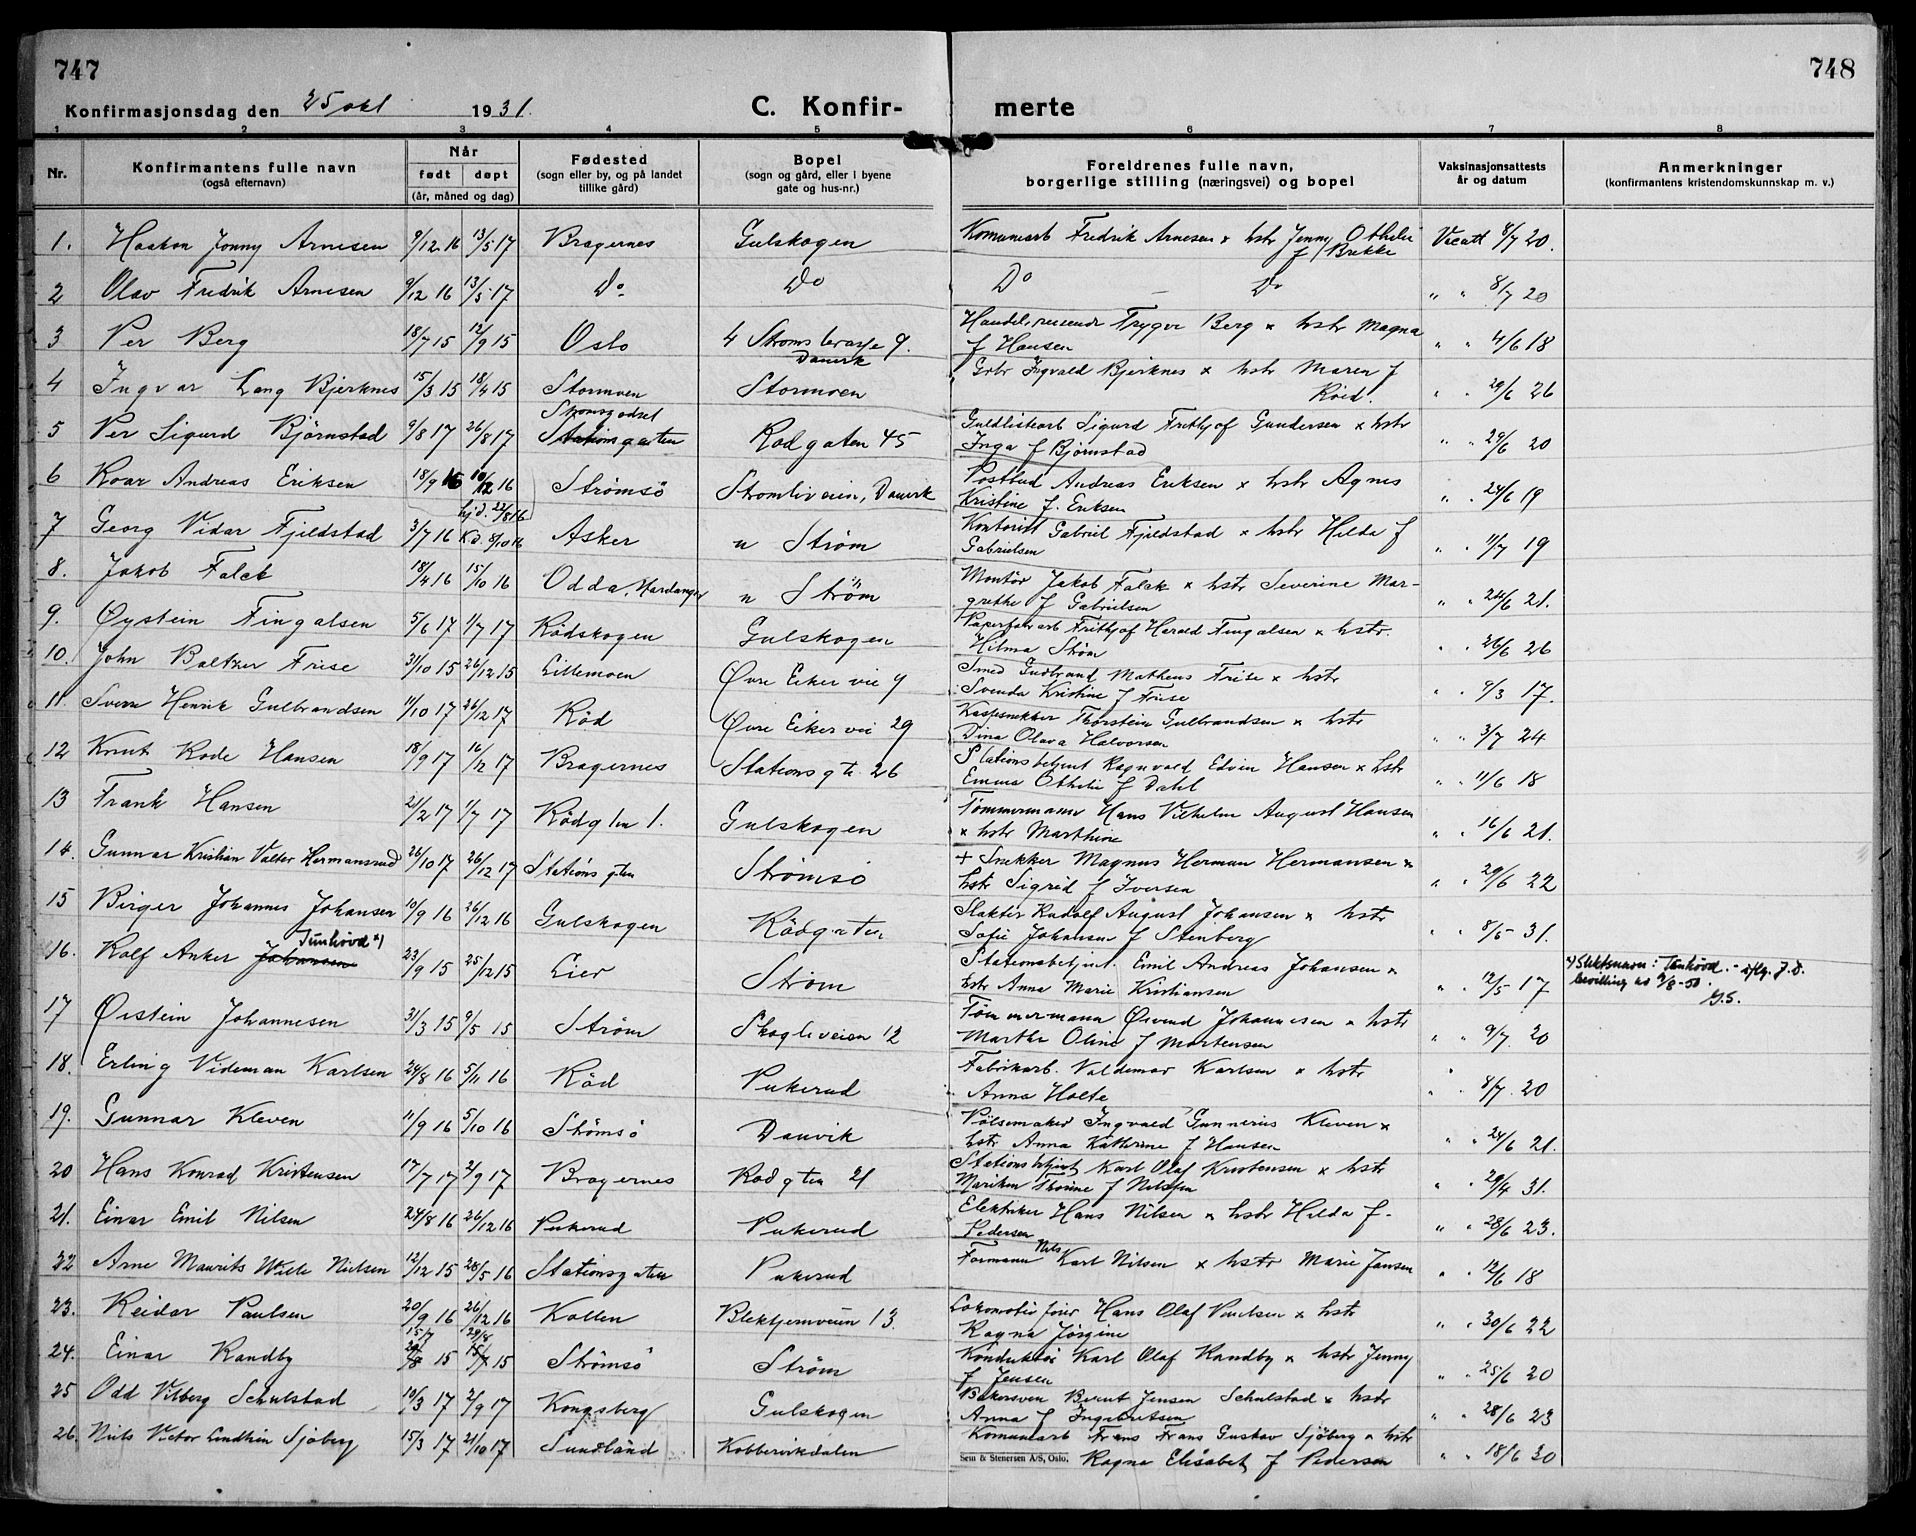 747
748
Konfirmasjonsdag den 25 okt 1931.
C. Konfir- merte
1 2 3 4 5 6 7 8
Nr. Konfirmantens fulle navn (også efternavn) Når født døpt (år, måned og dag) Fødested (sogn eller by, og på landet tillike gård) Bopel (sogn og gård, eller i byene gate og hus-nr.) Foreldrenes fulle navn, borgerlige stilling (næringsvei) og bopel Vaksinasjonsattests år og datum Anmerkninger (konfirmantens kristendomskunnskap m. v.)
1. Haakon Jonny Arnesen 9/12 16 13/5 17 Bragernes Gulskogen Komunearb Fredrik Arnesen & hstr Jenny Othelie f Brekke Vacatt 8/7 20.
2 Olav Fredrik Arnesen 9/12 16 13/5 17 Do Do Do Do " " 8/7 20
3 Per Berg 18/7 15 12/9 15 Oslo 4 Stroms terasse 9. Danvik Handelsreisende Trygve Berg & hstr Magna f Hansen " " 4/6 18
4 Ingvar Lang Bjerknes 15/3 15 18/4 15 Stormoen Stormoen Grbr Ingvald Bjerknes & hstr Maren f Roed. " " 29/6 26
5 Per Sigurd Björnstad 9/8 17 26/8 17 Stromsgodset Stationsgaten Rodgaten 45 Guldlistearb Sigurd Frithjof Gundersen & hstr Inga f Bjørnstad " " 29/6 20
6 Roar Andreas Eriksen 18/9 16 10/12 16 Strömsö Stromliveien, Danvik Postbud Andreas Eriksen & hstr Agnes Kristine f. Eriksen " " 24/6 19
7 Georg Vidar Fjeldstad 3/7 16 hjd. 22/8 16 Kd. 8/10 16 Asker n Strøm Kontorist Gabriel Fjeldstad & hstr Hilda f Gabrielsen " " 11/7 19
8. Jakob Falck 18/4 16 15/10 16 Odda, Hardanger n Ström Montör Jakob Falck & hstr Severine Margrethe f Gabrielsen " " 24/6 21.
9. Øystein Fingalsen 5/6 17 1/7 17 Rödskogen Gulskogen Papirfabr arb Frithjof Harald Fingalsen & hstr. Hilma Strøm " " 26/6 26
10. John Baltzer Frise 31/10 15 26/12 15 Lillemoen Øvre Eiker vei 9 Smed Gudbrand Matheus Frise & hstr Svenda Kristine f Frise " " 9/3 17.
11. Sverre Henrik Gulbrandsen 11/10 17 26/12 17 Röd Øvre Eiker vei 29 Kassesnekker Thorstein Gulbrandsen & hstr Dina Olava Halvorsen " " 3/7 24
12 Knut Rode Hansen 18/9 17 16/12 17 Bragernes Stationsgt. 26 Stationsbetjent Ragnvald Edvin Hansen & hstr Emma Othelie f Dahl " " 11/6 18
13 Frank Hansen 21/2 17 1/7 17 Rödgten 1. Gulskogen Tømmermann Hans Vilhelm August Hansen & hstr Marthine " " 16/6 21.
14. Gunnar Kristian Valter Hermansrud 26/10 17 26/12 17 Stationsgten Strømsö + Snekker Magnus Herman Hermansen & hstr Sigrid f Iversen " " 29/6 22
15 Birger Johannes Johansen 10/9 16 26/12 16 Gulskogen Rödgaten Slakter Rudolf August Johansen & hstr Sofie Johansen f Stenberg " " 8/5 31.
16. Rolf Anker Johansen Tunhövd *) 23/9 15 25/12 15 Lier Strøm Stationsbetjent. Emil Andreas Johansen & hstr Anna Marie Kristiansen " " 12/5 17 *) Slektsnavn: Tunhövd. - iflg. J.D. bevilling av 9/8-50. G.S.
17 Øistein Johannesen 31/3 15 9/5 15 Ström Skogliveien 12 Tømmermann Øivind Johannesen & hstr Marthe Oline f Mortensen " " 9/7. 20
18. Erling Videman Karlsen 24/8 16 5/11 16 Röd Pukerud Fabrikarb. Valdemar Karlsen & hstr Anna Holte " " 8/7. 20
19. Gunnar Kleven 11/9 16 5/10 16 Strömsö Danvik Pølsemaker Ingvald Gunnerius Kleven & hstr Anna Kathrine f Hansen " " 24/6 21.
20 Hans Konrad Kristensen 17/7 17 2/9 17 Bragernes Rodgten 21 Stationsbetjent Karl Olaf Kristensen & hstr Mariken Thorine f Nilssen " " 29/4 31.
21. Einar Emil Nilsen 24/8 16 26/12 16 Pukerud Pukerud Elektriker Hans Nilsen & hstr Hilda f. Pedersen " " 28/6 23.
22 Arne Maurits Wille Nielsen 12/12 15 28/5 16 Stationsgaten Pukerud Formann Nils Karl Nilsen & hstr Marie Jansen " " 12/6 18
23. Reidar Paulsen 20/9 16 26/12 16 Kollen Blektjernveien 13. Lokomotivfører Hans Olaf Paulsen & hstr Ragna Jörgine " " 30/6 22
24. Einar Randby 15/7 15 29/8 15 Strömsö Ström Konduktör Karl Olaf Randby & hstr Jenny f Jensen " " 25/6 20
25 Odd Vilberg Schulstad 10/3 17 2/9 17 Kongsberg Gulskogen Bakersven Bernt Jensen Schulstad & hstr Anna f Ingebretsen " " 28/6 23
26. Nils Victor Lendhin Sjöberg 15/3 17 21/10 17 Sundland Kobbervikdalen Komunearb Frans Gustav Sjöberg & hstr Ragna Elisabet f Pedersen " " 18/6 30
Sem & Stenersen A/S, Oslo.